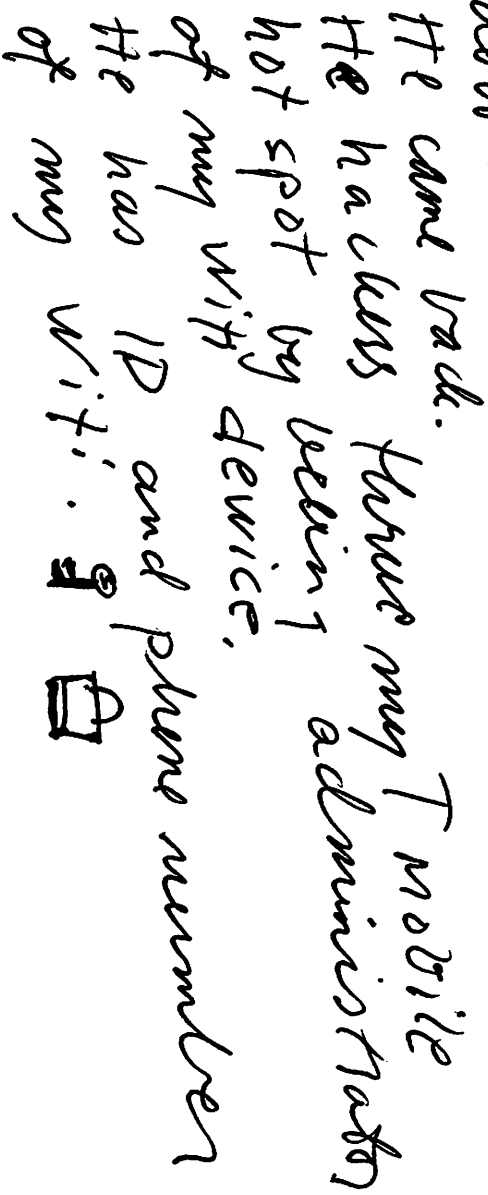 He came back.
He hackers thrue my T Mobile
hot spot by beeing administrator
of my wifi device.
He has IP and phone number
of my wifi.